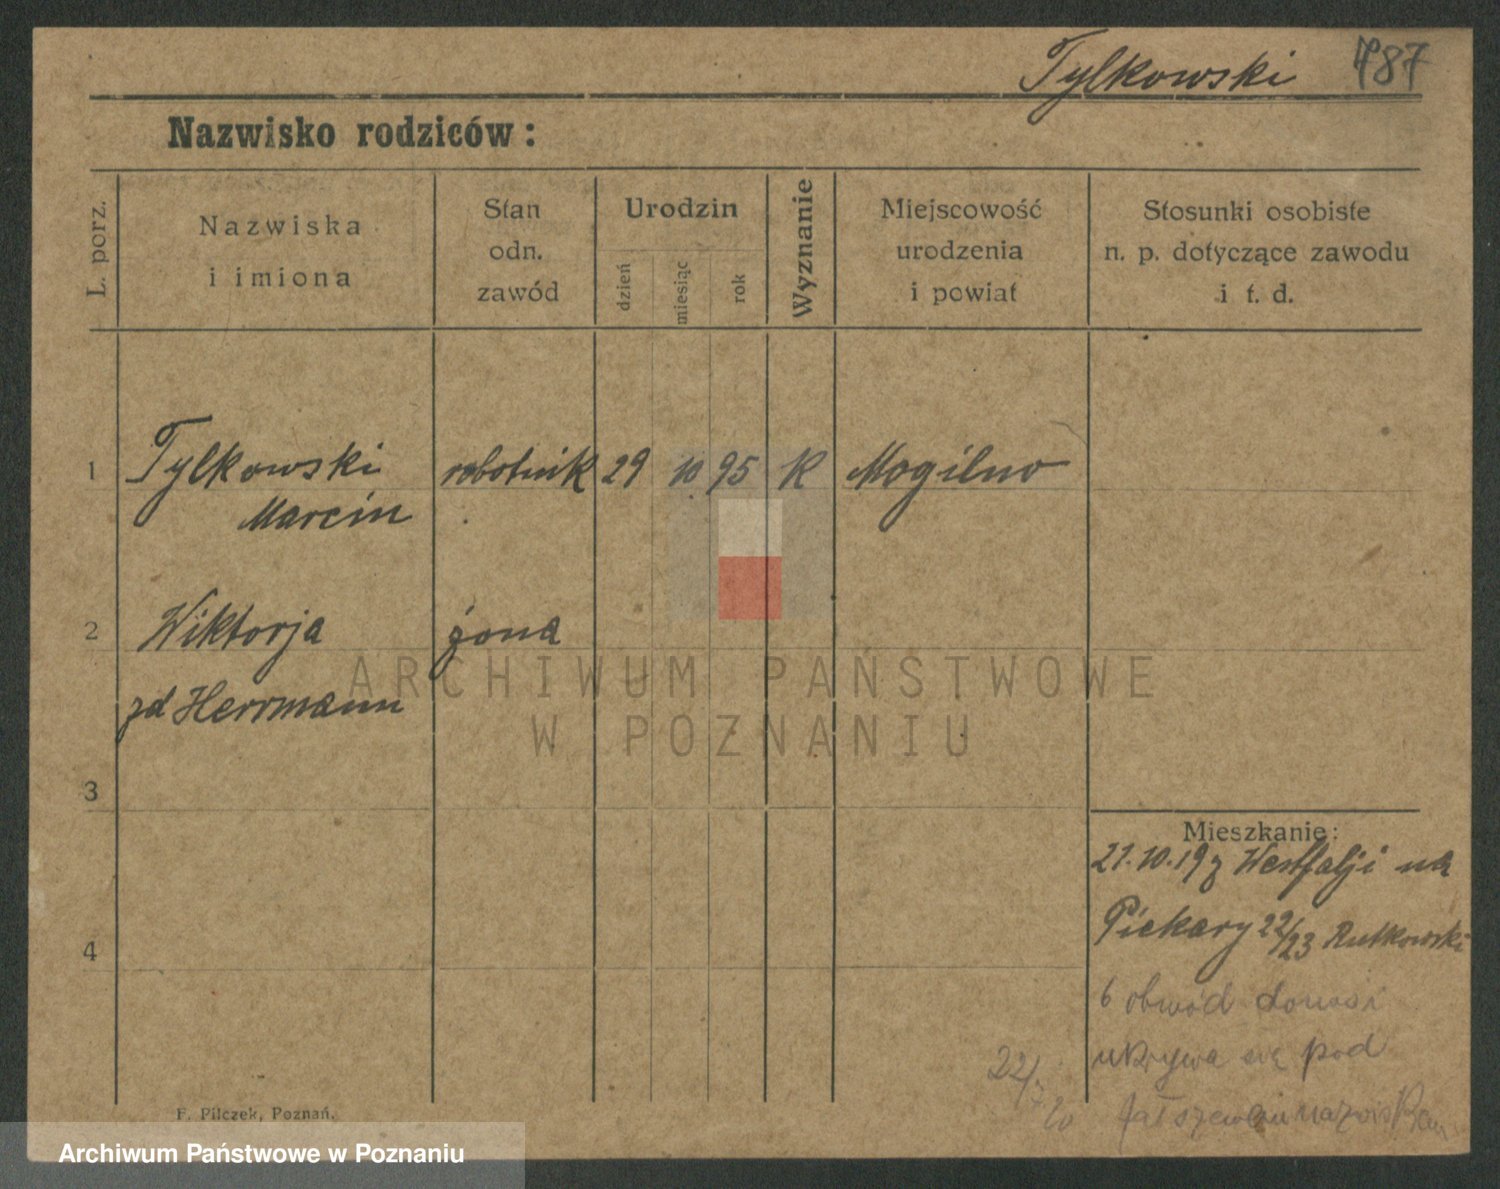 Tylkowski 787
Nazwisko rodziców:
L. porz.
Nazwiska
i imiona
Stan
odn.
zawód
Urodzin
dzień
miesiąc
rok
Wyznanie
Miejscowość
urodzenia
i powiat
Stosunki osobiste
n. p. dotyczące zawodu
i t. d.
1 Tylkowski robotnik 29 10 95 K Mogilno
Marcin
2 Wiktorja żona
zd Herrmann
3
4
Mieszkanie:
21.10.19 z Westfalji na
Piekary 22/23 Rutkowski
6 obwód donosi
ukrywa się pod
fałszywem nazwiskiem
22/7 20
F. Pilczek, Poznań.
ARCHIWUM PAŃSTWOWE
W POZNANIU
Archiwum Państwowe w Poznaniu